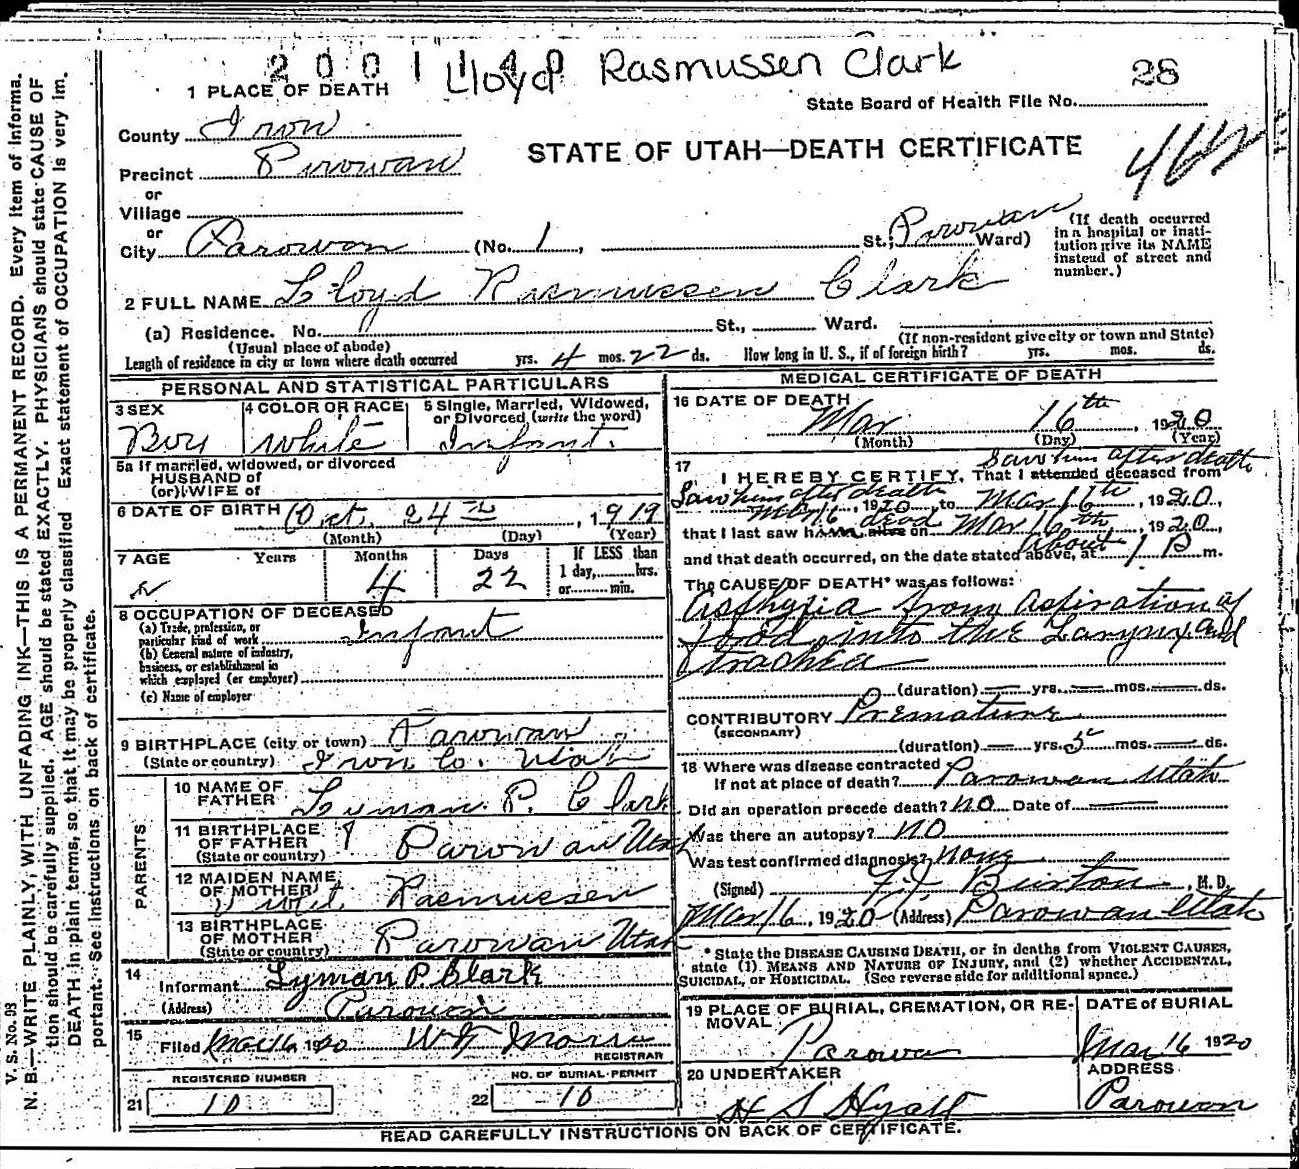 2001140 Lloyd Rasmussen Clark 28
1 PLACE OF DEATH
State Board of Health File No.
County Iron
STATE OF UTAH—DEATH CERTIFICATE
Precinct Parowan
or
Village
or
City Parowan (No. 1, St.; Parowan Ward)
(If death occurred in a hospital or insti-
tution give its NAME instead of street and number.)
2 FULL NAME Lloyd Rasmussen Clark
(a) Residence. No. St., Ward.
(Usual place of abode) (If non-resident give city or town and State)
Length of residence in city or town where death occurred yrs. 4 mos. 22 ds. How long in U. S., if of foreign birth? yrs. mos. ds.
PERSONAL AND STATISTICAL PARTICULARS
3 SEX Boy
4 COLOR OR RACE White
5 Single, Married, Widowed, or Divorced (write the word) Infant.
5a If married, widowed, or divorced
HUSBAND of
(or) WIFE of
6 DATE OF BIRTH Oct. 24th, 1919
(Month) (Day) (Year)
7 AGE Years Months 4 Days 22
If LESS than 1 day, hrs. or min.
8 OCCUPATION OF DECEASED
(a) Trade, profession, or particular kind of work Infant
(b) General nature of industry, business, or establishment in which employed (or employer)
(c) Name of employer
9 BIRTHPLACE (city or town) Parowan
(State or country) Iron Co. Utah
PARENTS
10 NAME OF FATHER Lyman P. Clark
11 BIRTHPLACE OF FATHER (State or country) Parowan Utah
12 MAIDEN NAME OF MOTHER Rasmussen
13 BIRTHPLACE OF MOTHER (State or country) Parowan Utah
14 Informant Lyman P. Clark
(Address) Parowan
15 Filed Mar 16 1920
REGISTRAR
REGISTERED NUMBER
21 10
NO. OF BURIAL PERMIT
22 10
MEDICAL CERTIFICATE OF DEATH
16 DATE OF DEATH
Mar 16th, 1920
(Month) (Day) (Year)
17 Saw him after death
I HEREBY CERTIFY, That I attended deceased from
Saw him after death
Mar 16, 1920, to Mar 16th, 1920,
that I last saw him alive on dead Mar 16th, 1920,
and that death occurred, on the date stated above, at about 1 P m.
The CAUSE OF DEATH* was as follows:
Asphyxia from aspiration of
food into the Larynx and
trachea
(duration) yrs. mos. ds.
CONTRIBUTORY Premature
(SECONDARY)
(duration) yrs. 5 mos. ds.
18 Where was disease contracted
If not at place of death? Parowan Utah
Did an operation precede death? no Date of
Was there an autopsy? no
Was test confirmed diagnosis? none
(Signed) Burton, M. D.
Mar 16, 1920 (Address) Parowan Utah
* State the DISEASE CAUSING DEATH, or in deaths from VIOLENT CAUSES,
state (1) MEANS AND NATURE OF INJURY, and (2) whether ACCIDENTAL,
SUICIDAL, or HOMICIDAL. (See reverse side for additional space.)
19 PLACE OF BURIAL, CREMATION, OR RE-
MOVAL Parowan
DATE of BURIAL
Mar 16 1920
20 UNDERTAKER
H S Hyatt
ADDRESS
Parowan
READ CAREFULLY INSTRUCTIONS ON BACK OF CERTIFICATE.
V. S. No. 93
N. B.—WRITE PLAINLY, WITH UNFADING INK—THIS IS A PERMANENT RECORD. Every item of informa-
tion should be carefully supplied. AGE should be stated EXACTLY. PHYSICIANS should state CAUSE OF
DEATH in plain terms, so that it may be properly classified. Exact statement of OCCUPATION is very im-
portant. See instructions on back of certificate.